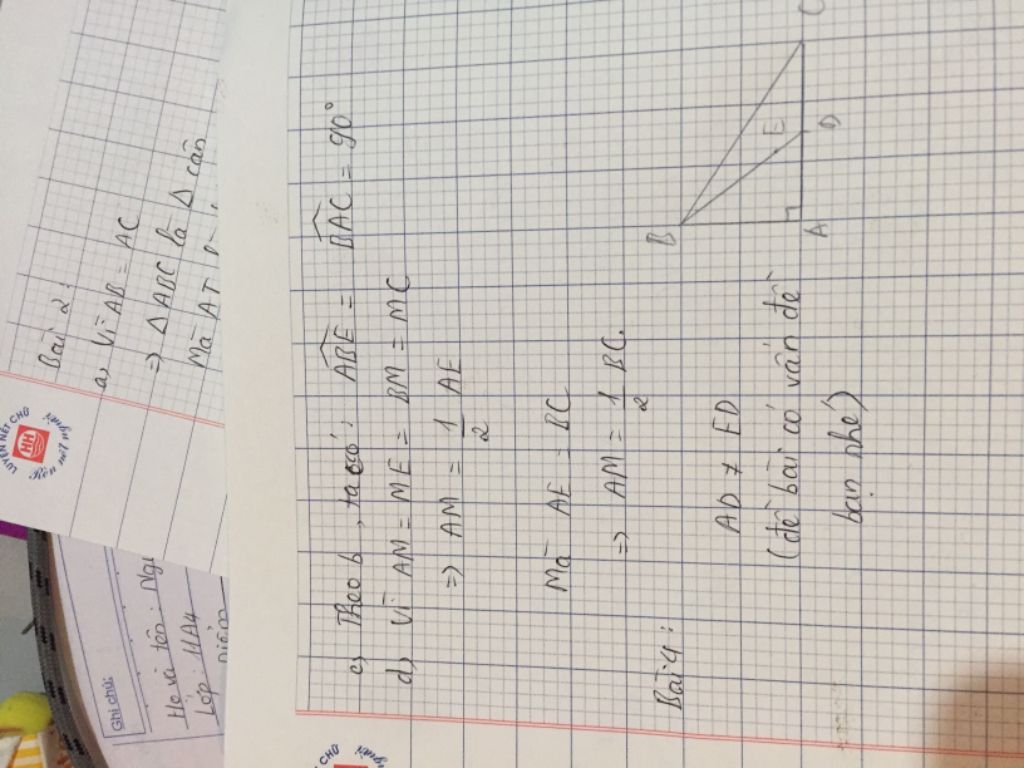 Bài 2:
a) Vì AB = AC
=> ΔABC là Δ cân
Mà
LUYỆN NÉT CHỮ
Rèn nết người
HH
Ghi chú:
Họ và tên:
Lớp: 11A4
c) Theo b, ta có: ABE = BAC = 90°
d) Vì AM = ME = BM = MC
=> AM = 1/2 AE
Mà AE = BC
=> AM = 1/2 BC.
Bài 4:
AD ≠ ED
(đề bài có vấn đề
bạn nhé)
B
A
E
D
C
người